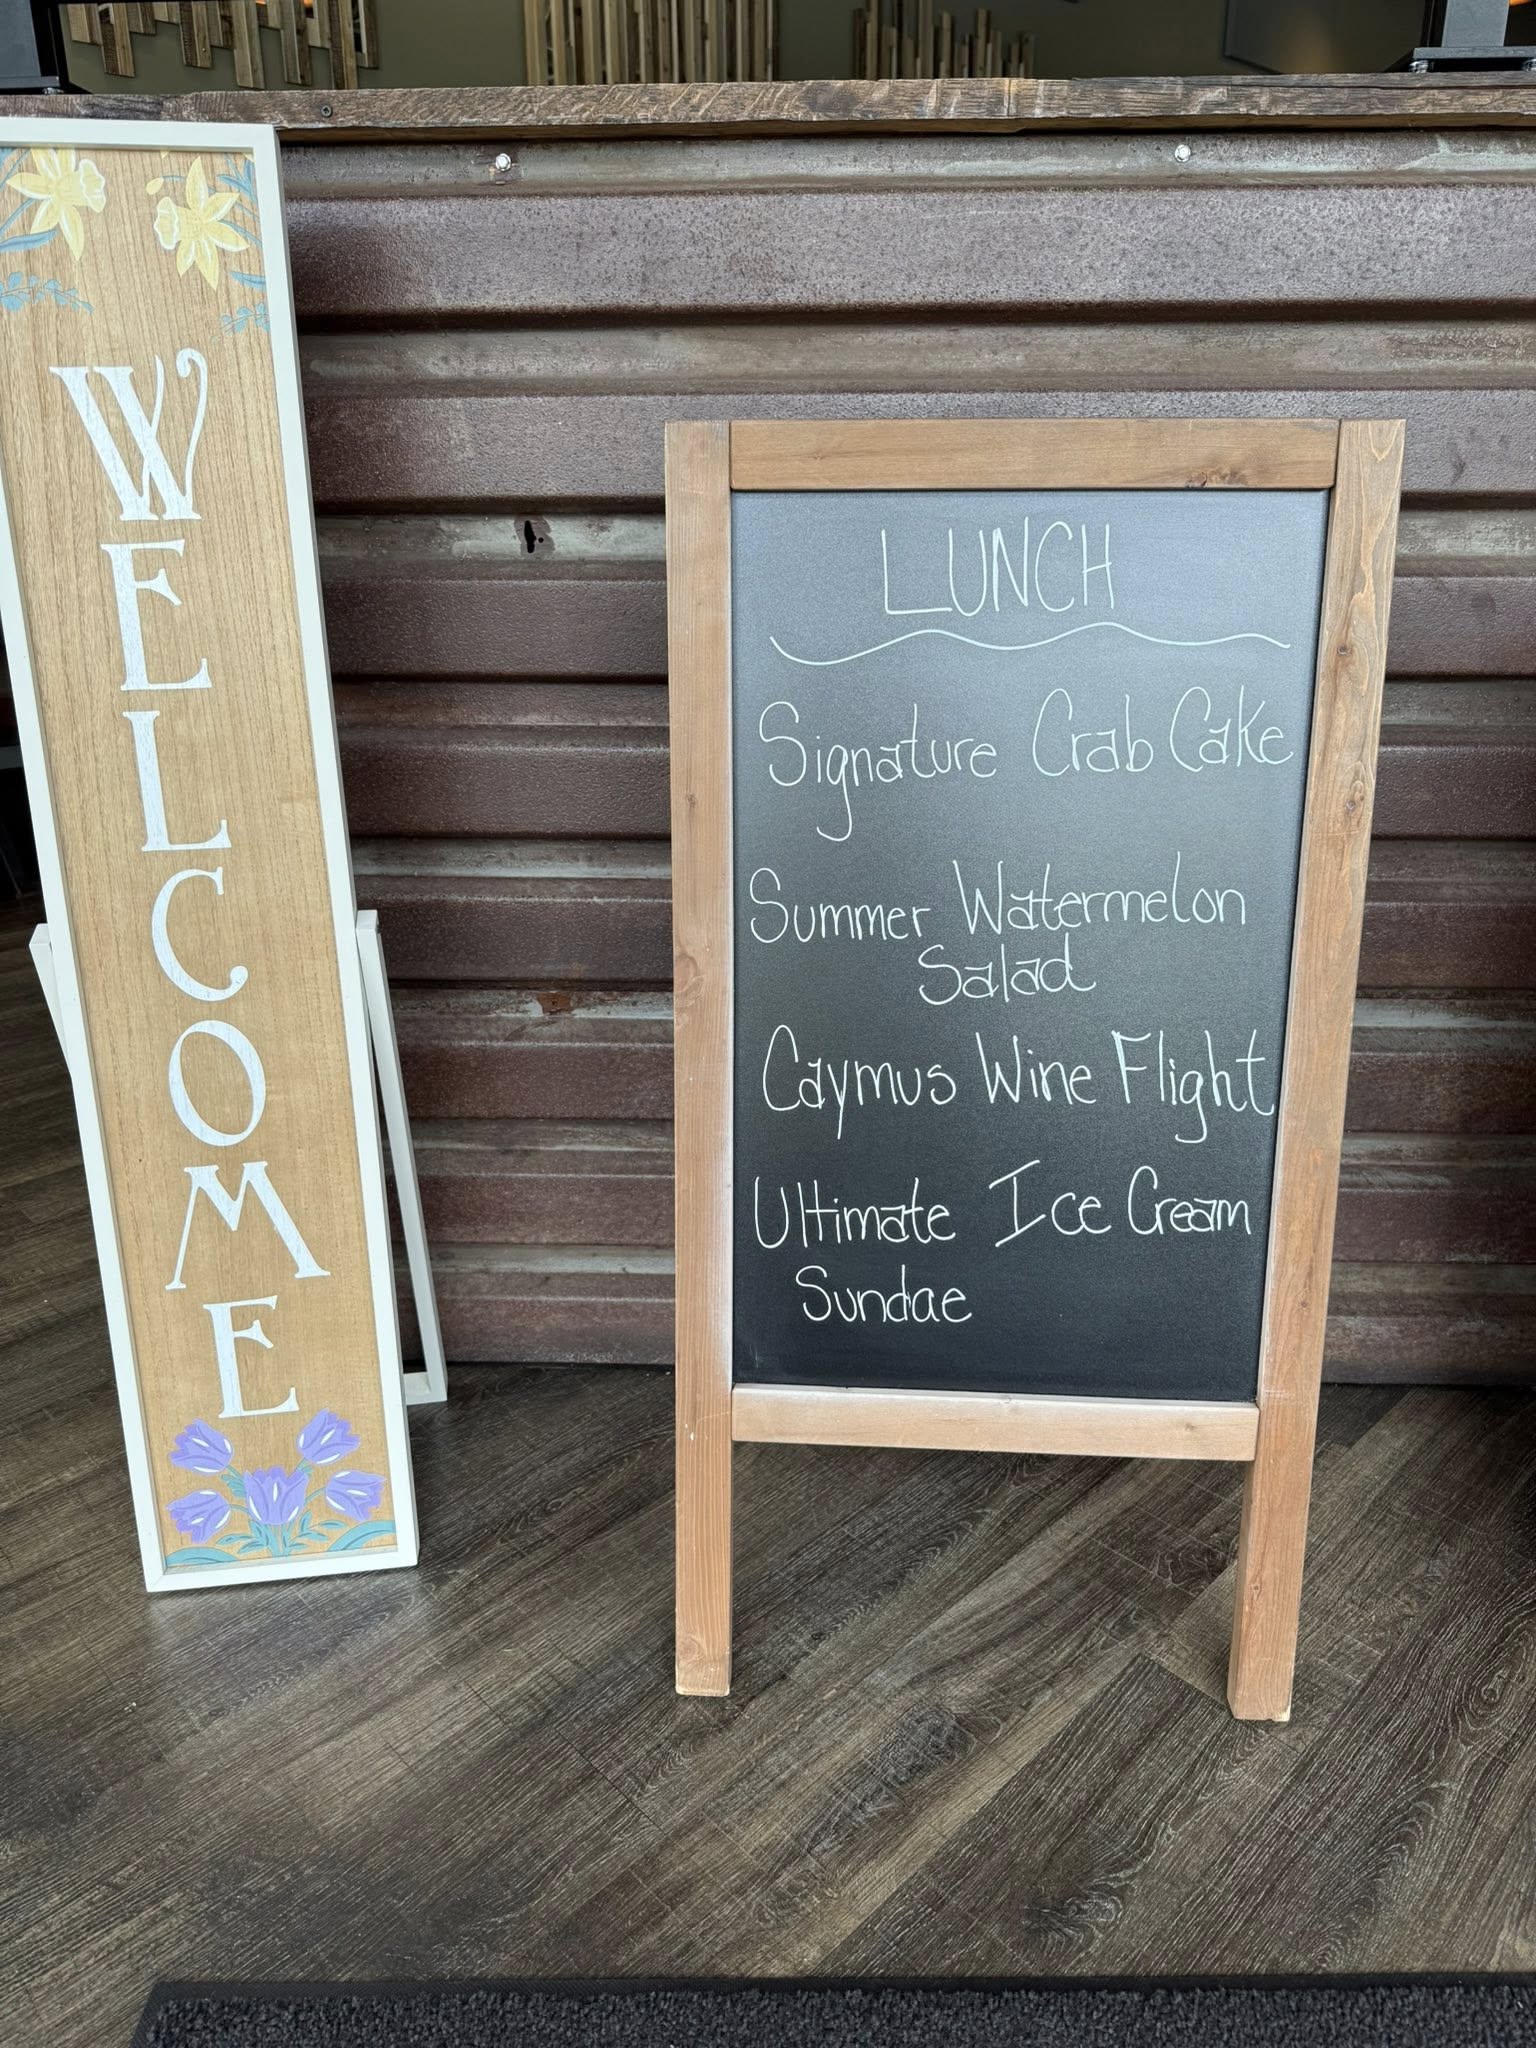 WELCOME
LUNCH
Signature Crab Cake
Summer Watermelon
Salad
Caymus Wine Flight
Ultimate Ice Cream
Sundae